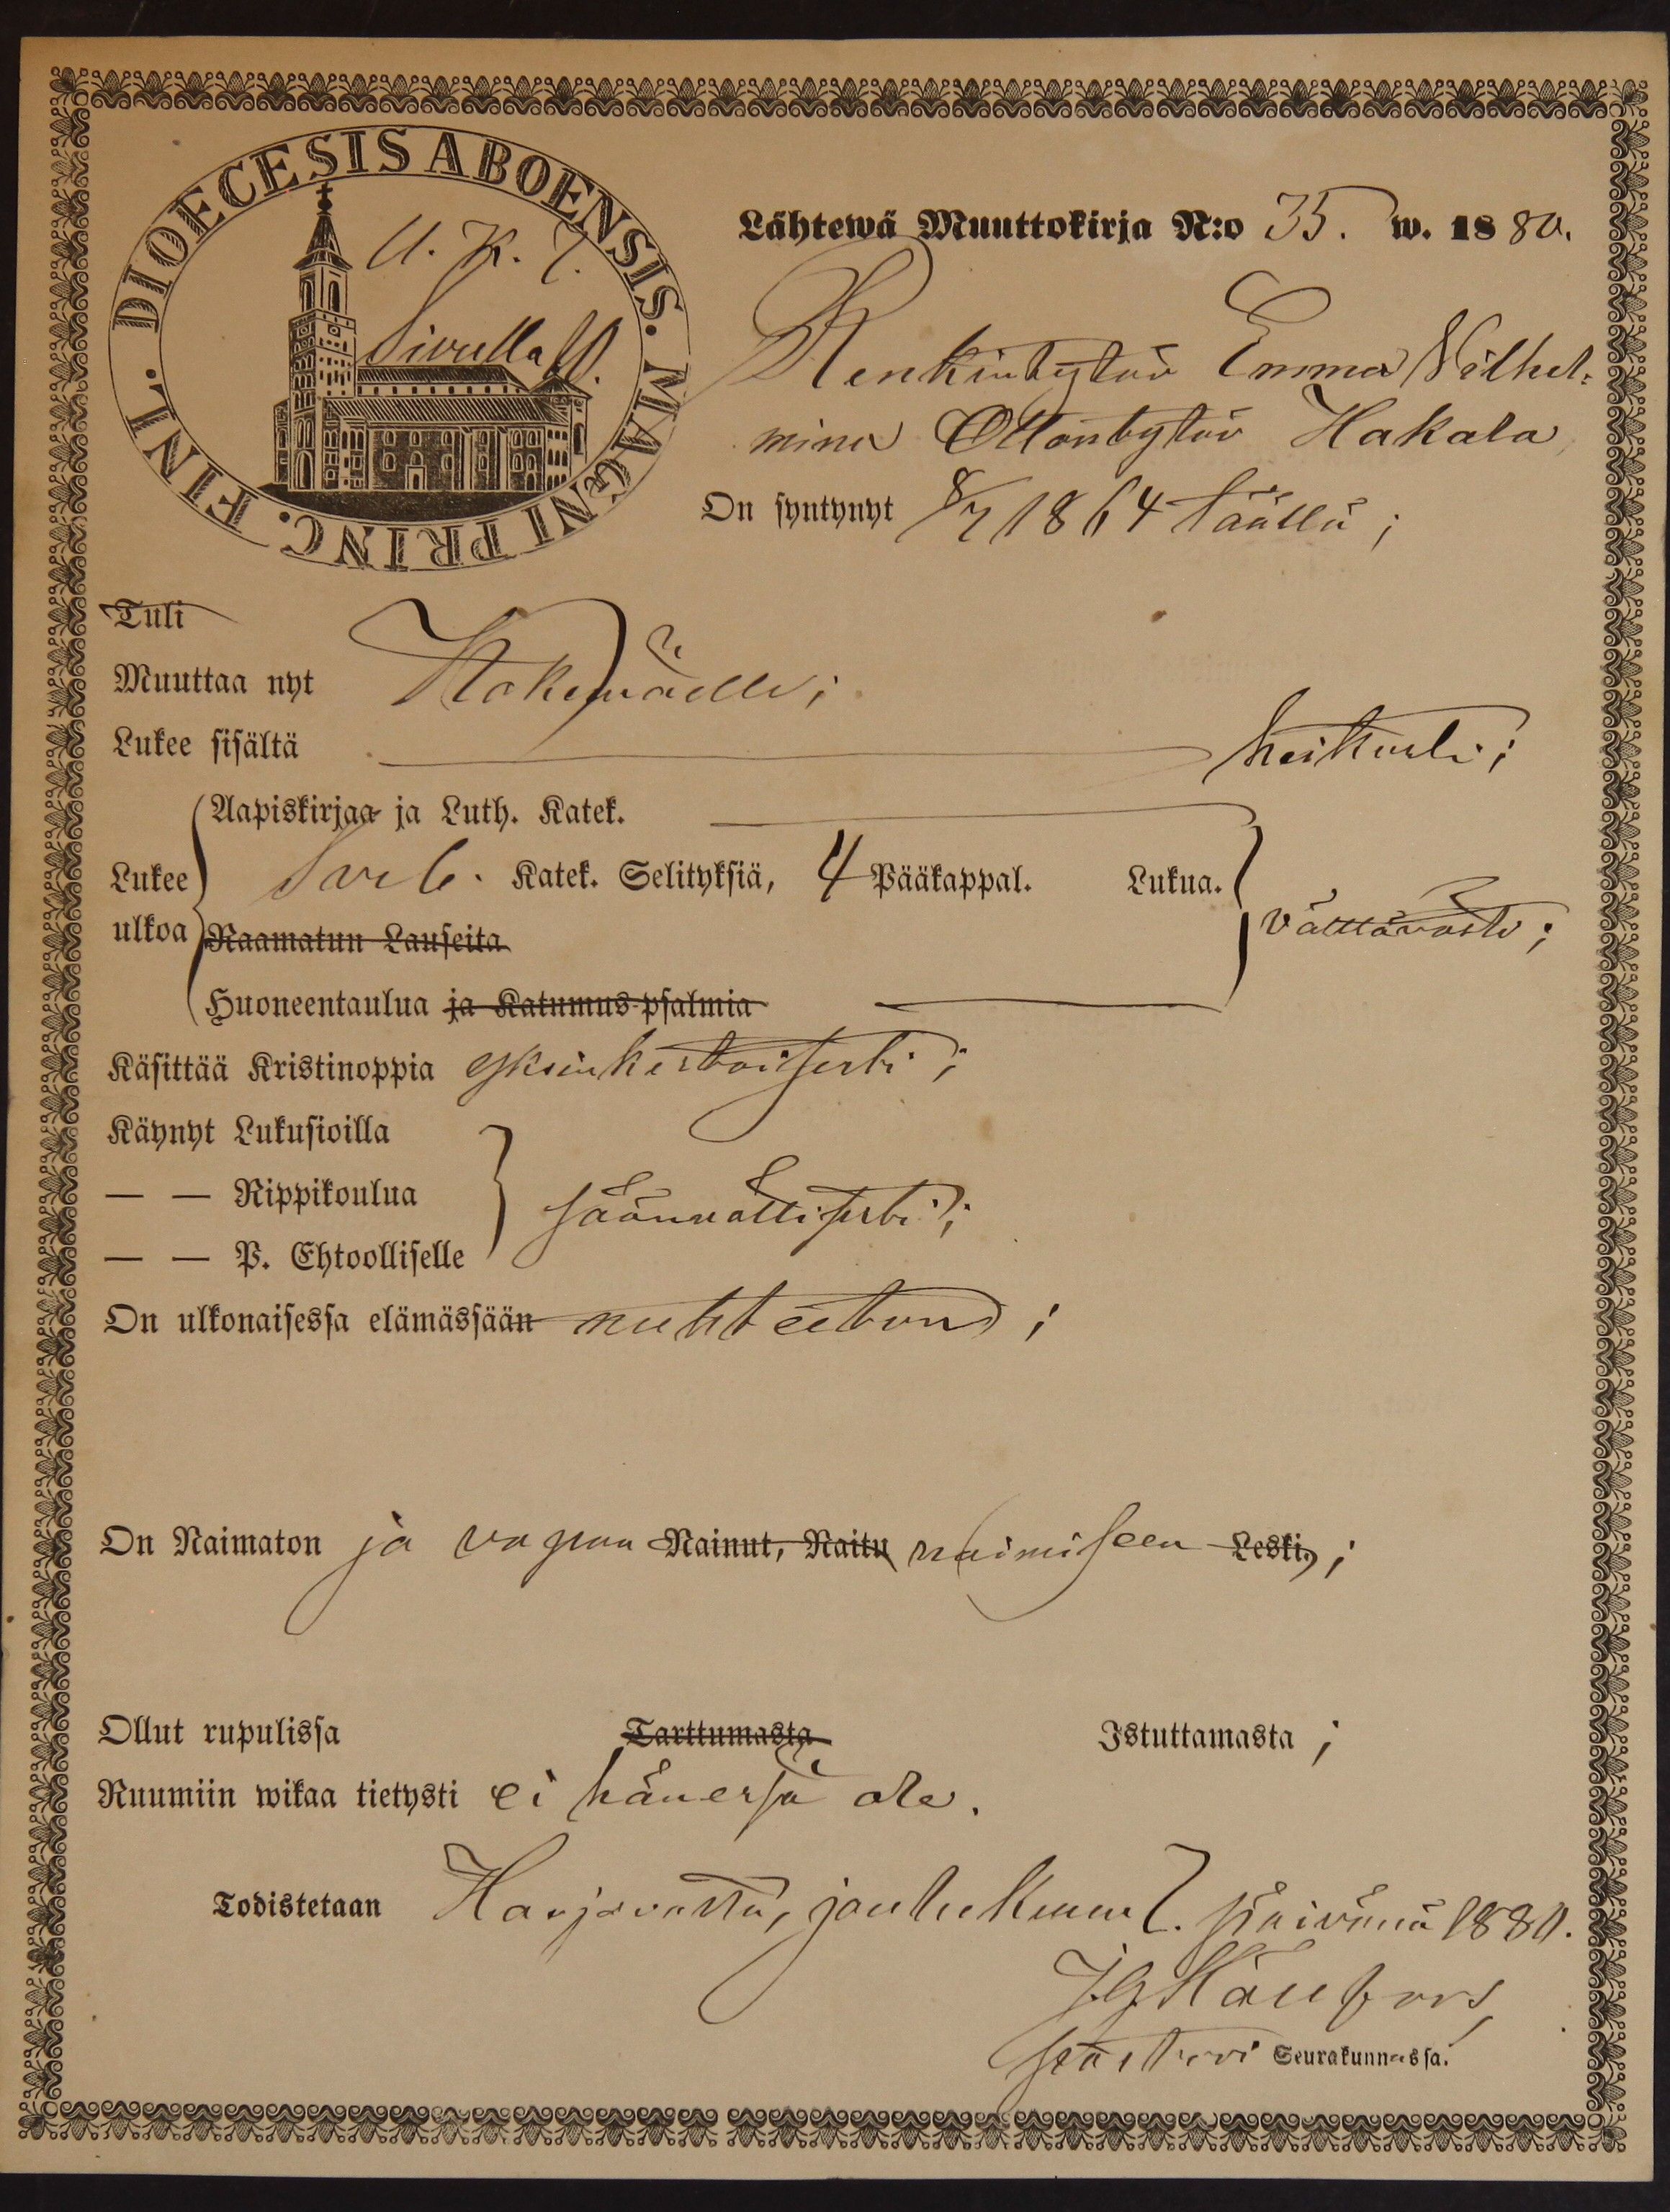 DIOECESIS ABOENSIS. MAGNI PRINC. FINL.
U. K. T.
Sivulla
Lähtewä Muuttokirja N:o 35. w. 1880.
Renkintytär Emma Vilhel-
mina Ottontytär Hakala
On syntynyt 8/7 1864 täällä;
Tuli
Muuttaa nyt Kokemäelle;
Lukee sisältä heikosti;
Aapiskirjaa ja Luth. Katek.
Lukee Sveb. Katek. Selityksiä, 4 Pääkappal. Lukua.
ulkoa Raamatun Lauseita välttävästi;
Huoneentaulua ja Katumus-psalmia
Käsittää Kristinoppia yksinkertaisesti;
Käynyt Lukusioilla
— — Rippikoulua säännöllisesti;
— — P. Ehtoolliselle
On ulkonaisessa elämässään nuhteeton;
On Naimaton ja vapaa Nainut, Naitu naimiseen Leski,;
Ollut rupulissa Tarttumasta Istuttamasta;
Ruumiin wikaa tietysti ei hänessä ole.
Todistetaan Harjavalta, joulukuun 7. päivänä 1880.
seurakunnassa.